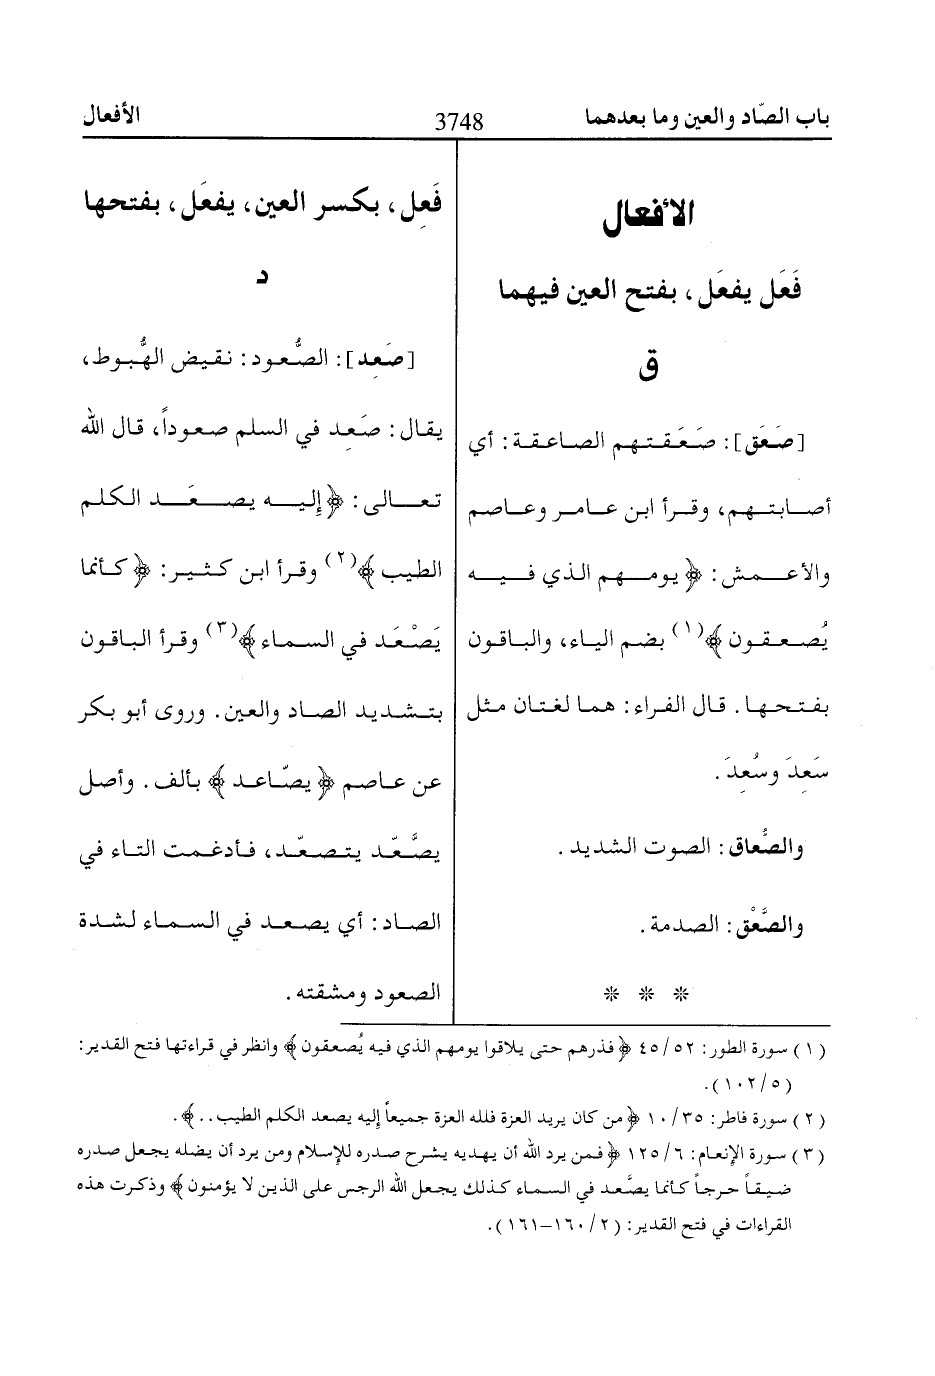 باب الصّاد والعين وما بعدهما 3748 الأفعال
الأفعال
فَعَل يفعَل، بفتح العين فيهما
ق
[صَعَق]: صَعَقتهم الصاعقة: أي
أصابتهم، وقرأ ابن عامر وعاصم
والأعمش: ﴿يومهم الذي فيه
يُصعقون﴾(١) بضم الياء، والباقون
بفتحها. قال الفراء: هما لغتان مثل
سَعِدَ وسُعِدَ.
والصُّعاق: الصوت الشديد.
والصَّعْق: الصدمة.
* * *
فَعِل، بكسر العين، يفعَل، بفتحها
د
[صَعِد]: الصُّعود: نقيض الهُبوط،
يقال: صَعِد في السلم صعوداً، قال الله
تعالى: ﴿إليه يصعَد الكلم
الطيب﴾(٢) وقرأ ابن كثير: ﴿كأنما
يَصْعَد في السماء﴾(٣) وقرأ الباقون
بتشديد الصاد والعين. وروى أبو بكر
عن عاصم ﴿يصّاعد﴾ بألف. وأصل
يصَّعّد يتصعّد، فأدغمت التاء في
الصاد: أي يصعد في السماء لشدة
الصعود ومشقته.
(١) سورة الطور: ٥٢/ ٤٥ ﴿فذرهم حتى يلاقوا يومهم الذي فيه يُصعقون﴾ وانظر في قراءتها فتح القدير:
(٥/ ١٠٢).
(٢) سورة فاطر: ٣٥/ ١٠ ﴿من كان يريد العزة فلله العزة جميعاً إليه يصعد الكلم الطيب..﴾.
(٣) سورة الإنعام: ٦/ ١٢٥ ﴿فمن يرد الله أن يهديه يشرح صدره للإسلام ومن يرد أن يضله يجعل صدره
ضيقاً حرجاً كأنما يصَّعد في السماء كذلك يجعل الله الرجس على الذين لا يؤمنون﴾ وذكرت هذه
القراءات في فتح القدير: (٢/ ١٦٠-١٦١).